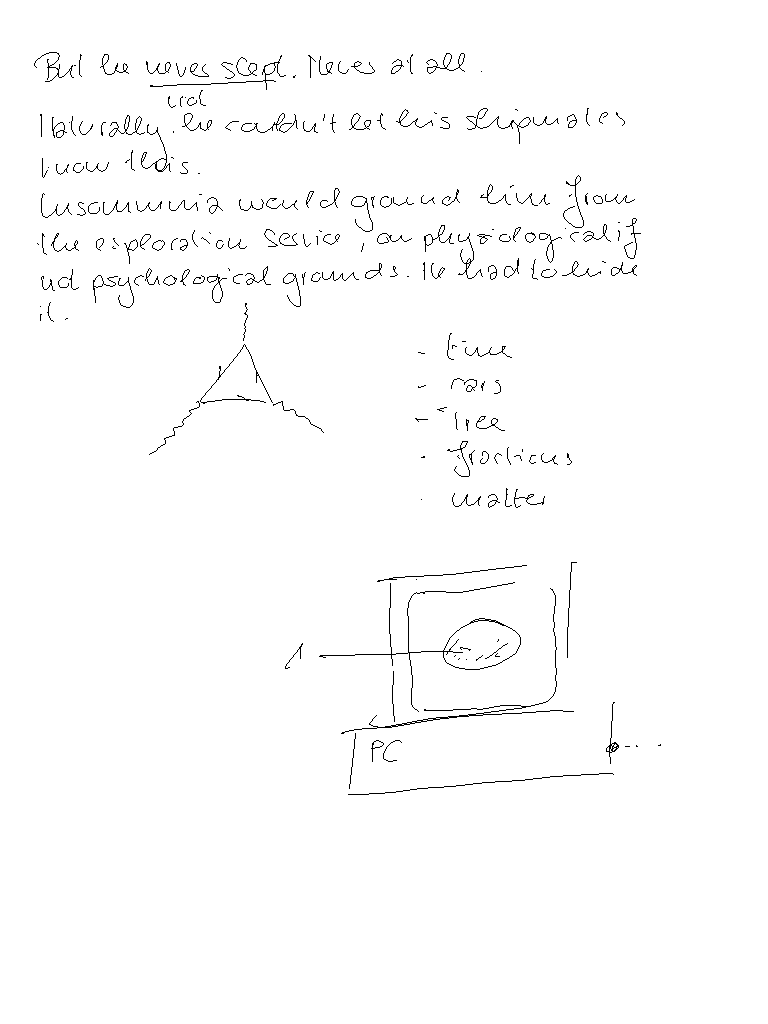 But he never slept. Never at all.
Naturally, he couldn't let his shipmates
know this.
Insommnia would ground him from
the exploration service, on physiological if
not psychological grounds. He had to hide
it.
- time
- cars
- tree
- fractions
- matter
1
PC